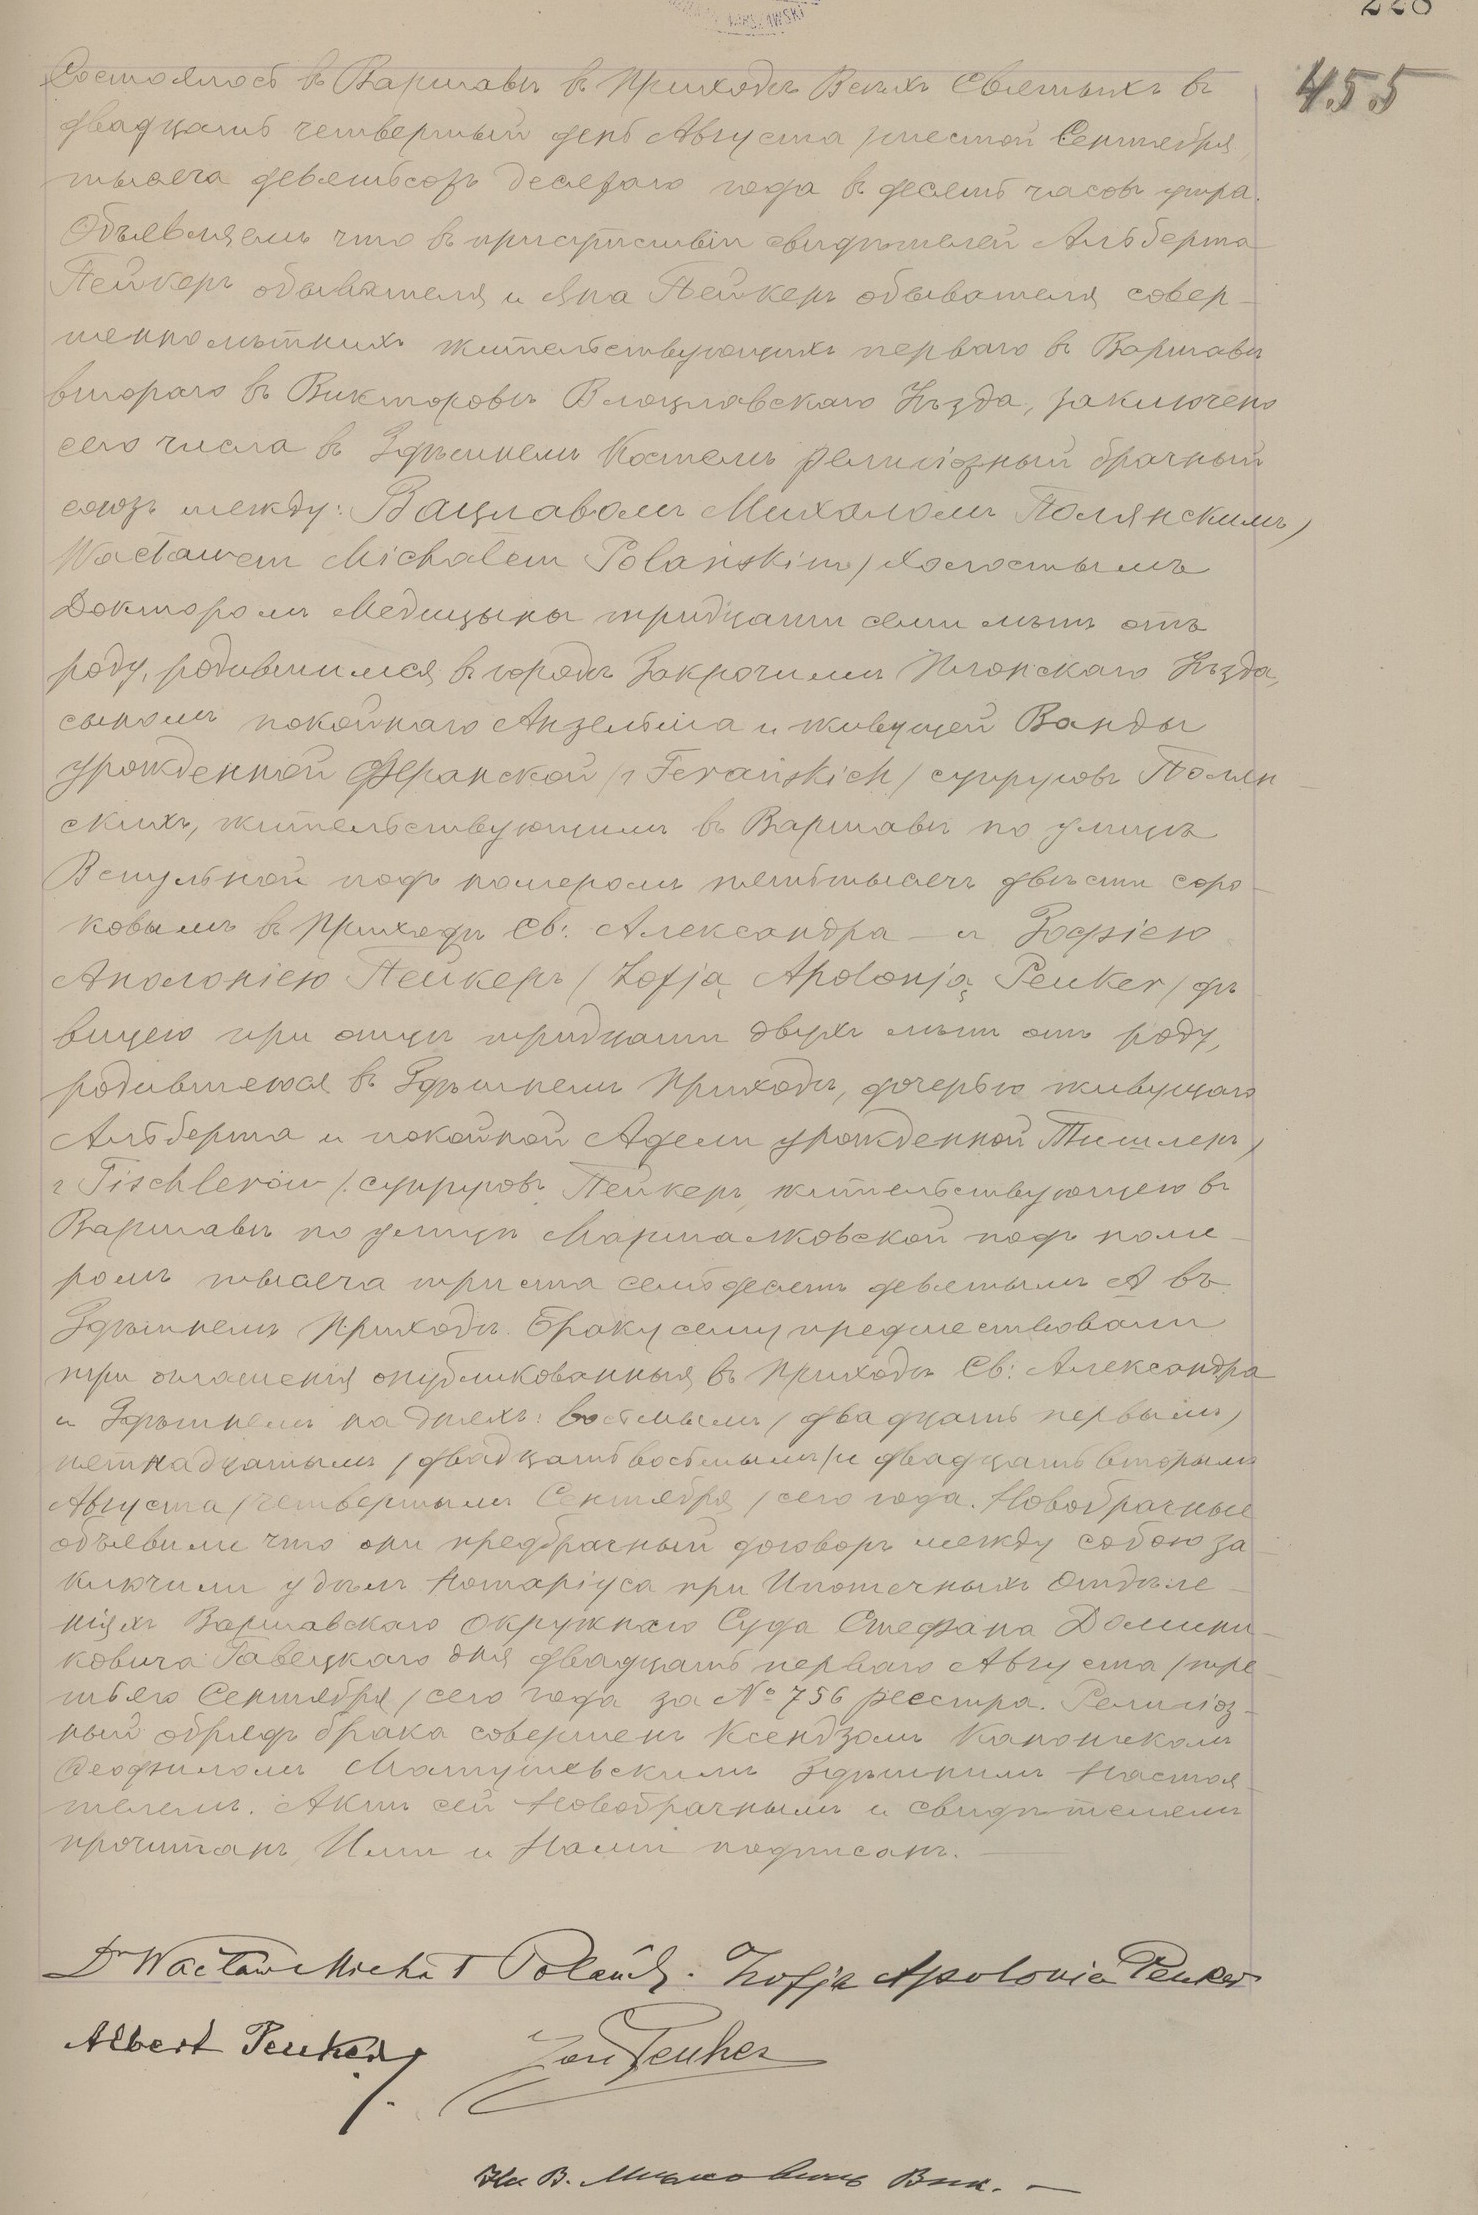 228
455
Состоялось въ Варшавѣ въ Приходѣ Всѣхъ Святыхъ въ
двадцать четвертый день Августа /шестой Сентября
тысяча девятьсотъ десятаго года въ десять часовъ утра.
Объявляемъ что въ присутствіи свидѣтелей Альберта
Пейкеръ обывателя и Яна Пейкеръ обывателя совер-
шеннолѣтнихъ жительствующихъ перваго въ Варшавѣ
втораго въ Викторовѣ Влоцлавскаго Уѣзда, заключено
сего числа въ Здѣшнемъ Костелѣ религіозный брачный
союзъ между: Вацлавомъ Михаломъ Полянскимъ/
Wacławem Michałem Polańskim/ Холостымъ
Докторомъ Медицыны тридцати семи лѣтъ отъ
роду, родившимся въ городѣ Закрочимъ Плонскаго Уѣзда,
сыномъ покойнаго Анзельма и живущей Ванды
урожденной Феранской /z Ferańskich/ супруговъ Полян-
скихъ, жительствующимъ въ Варшавѣ по улицѣ
Вспульной подъ номеромъ пятьтысячъ двѣсти соро-
ковымъ въ Приходѣ Св: Александра — и Зофіею
Аполоніею Пейкеръ /Zofją Apolonją Peuker/ дѣ
вицею при отцѣ тридцати двухъ лѣтъ отъ роду,
родившеюся въ Здѣшнемъ Приходѣ, дочерью живущаго
Альберта и покойной Адели урожденной Тишлеръ/
z Tischlerów/. супруговъ Пейкеръ, жительствующею въ
Варшавѣ по улицѣ Маршалковской подъ номе-
ромъ тысяча триста семьдесятъ девятымъ А въ
Здѣшнемъ Приходѣ. Браку сему предшествовали
три оглашенія опубликованныя въ Приходѣ Св: Александра
и Здѣшнемъ на дняхъ: восьмымъ /двадцать первымъ/
пятнадцатымъ /двадцать восьмымъ/ и двадцать вторымъ
Августа /четвертымъ Сентября/ сего года. Новобрачные
объявили что они предбрачный договоръ между собою за-
ключили у дѣлъ Нотаріуса при Ипотечныхъ Отдѣле-
ніяхъ Варшавскаго Окружнаго Суда Стефана Домини-
ковича Гавецкаго дня двадцать перваго Августа /тре-
тьяго Сентября/ сего года за № 756 реестра. Религіоз-
ный обрядъ брака совершенъ Ксендзомъ Каноникомъ
Теофиломъ Матушевскимъ Здѣшнимъ Настоя-
телемъ. Актъ сей Новобрачнымъ и свидѣтелямъ
прочитанъ Ими и Нами подписанъ. —
Dr Wacław Michał Polański. Zofja Apolonia Peuker
Albert Peuker Jan Peuker
Кс. В. Вик. —